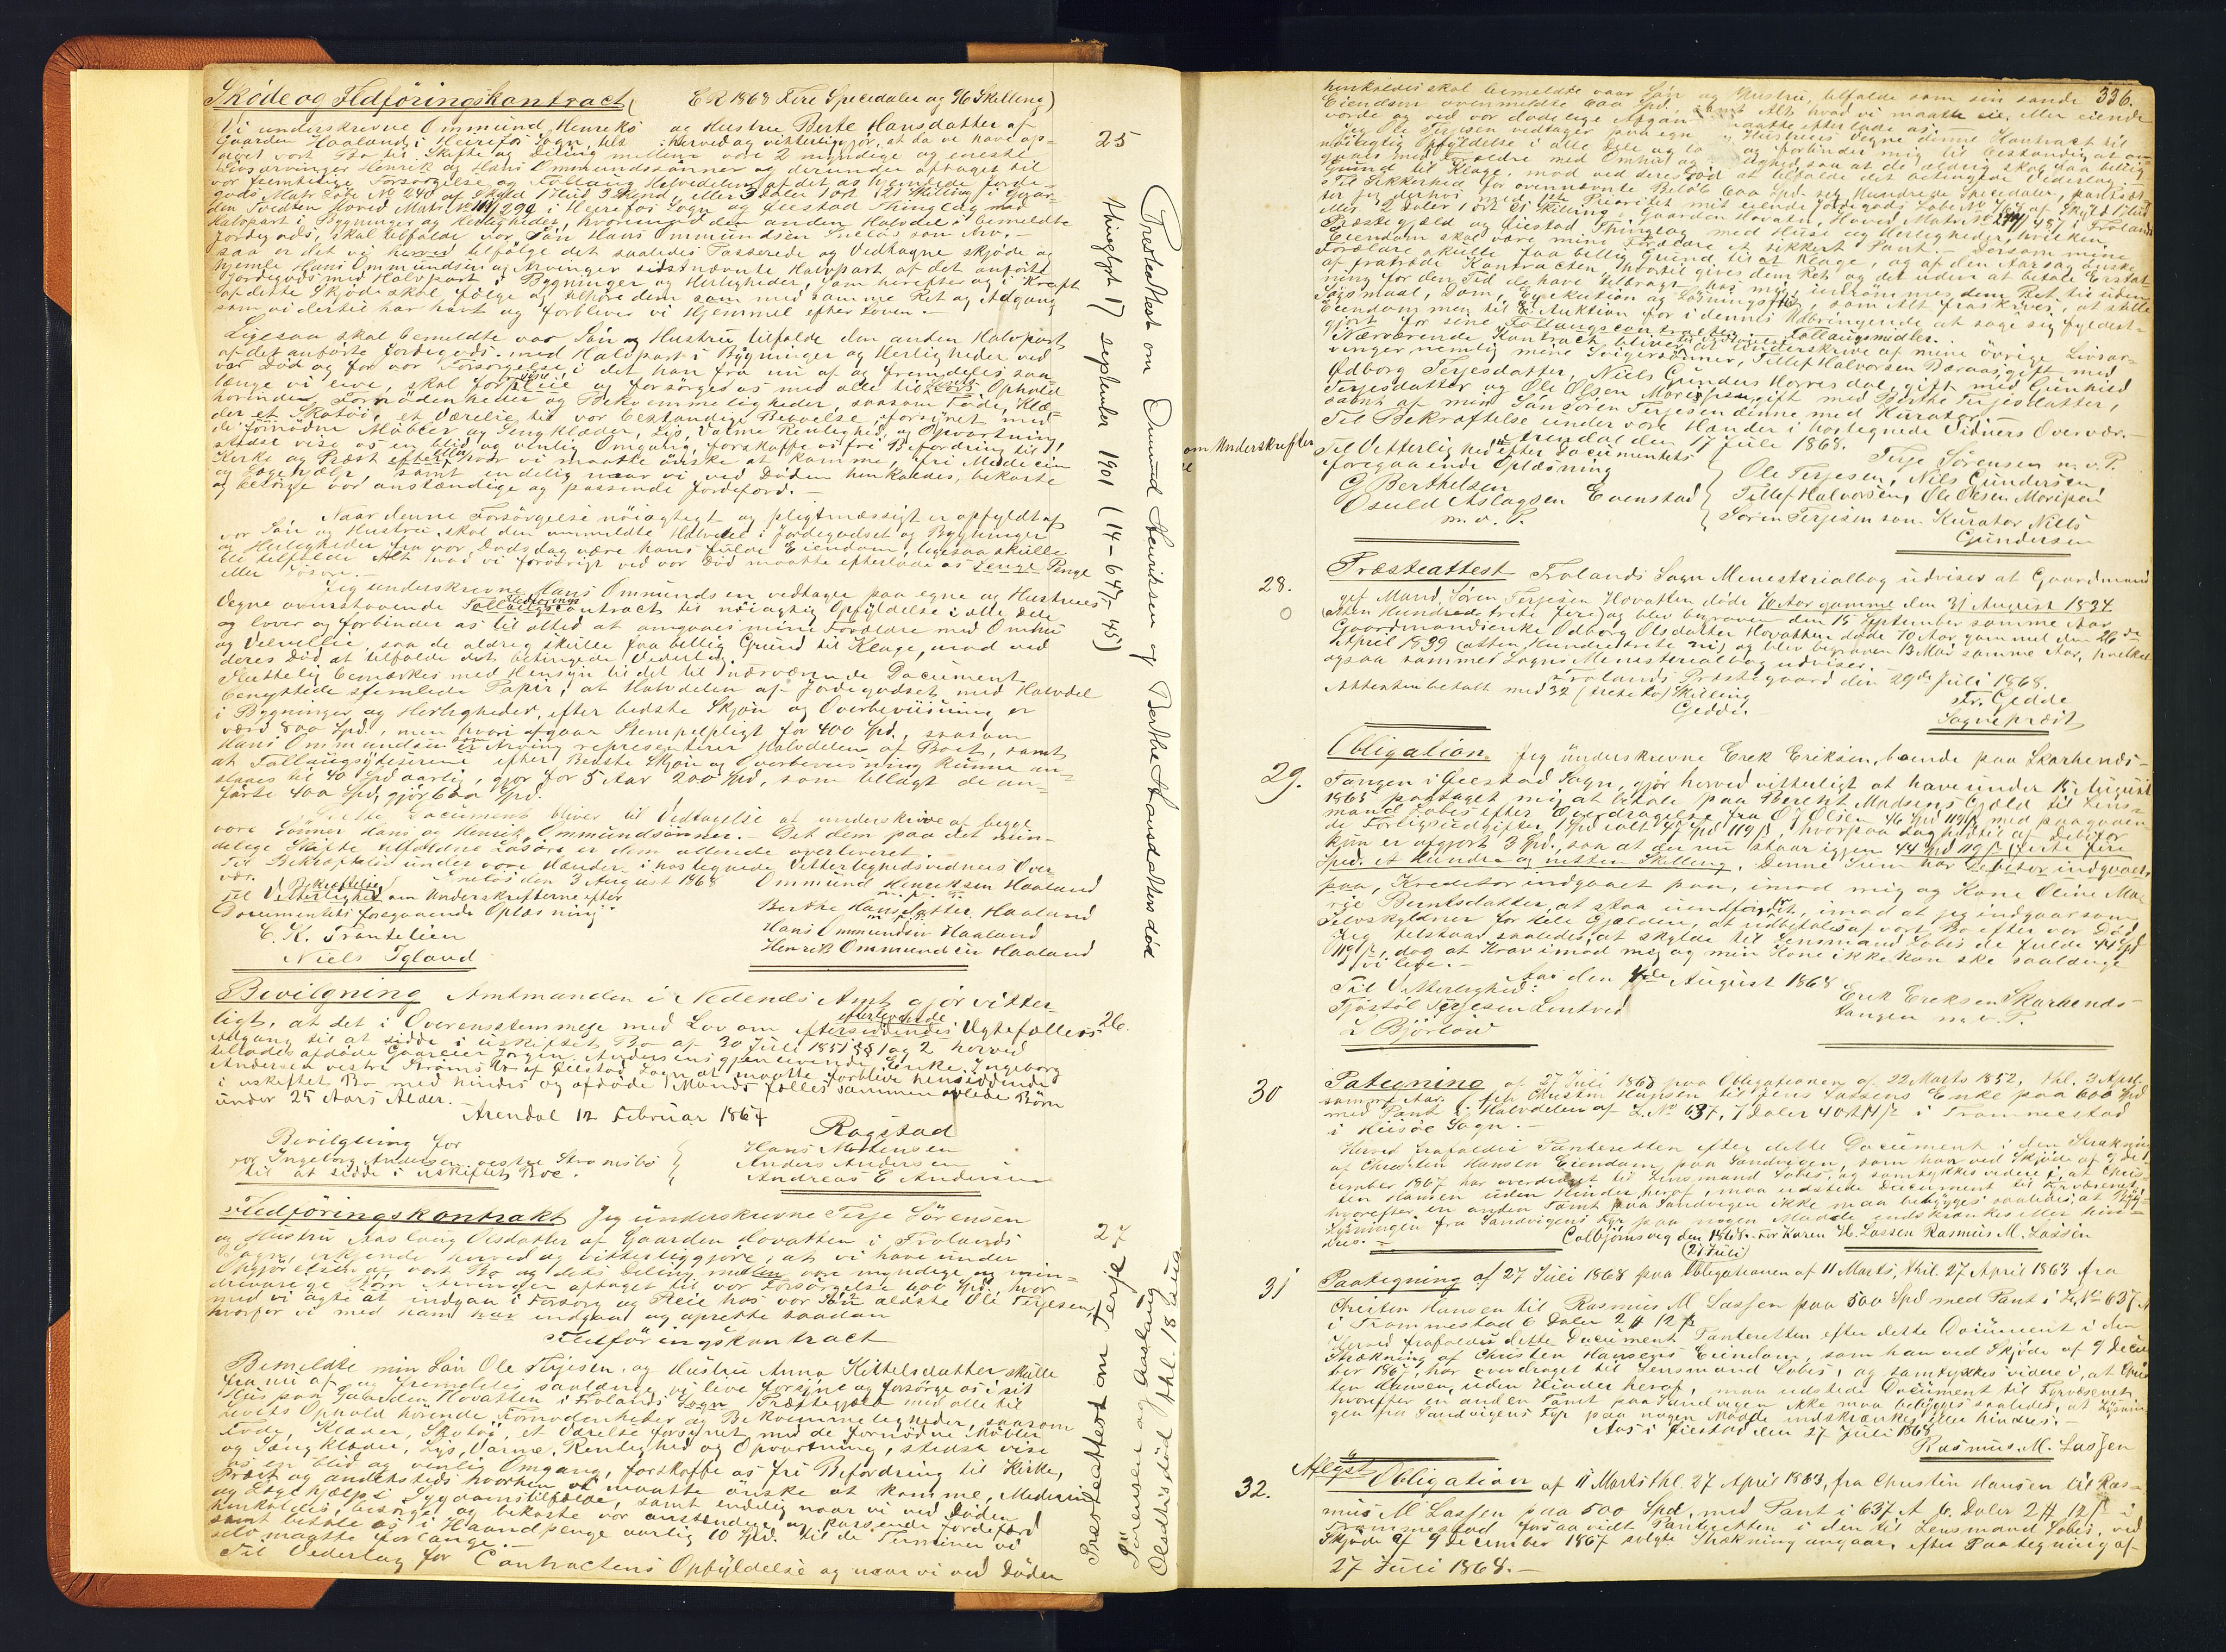 Skøde og Fledføringskontract (CR 1868 Fire Speciedaler og 96 Skilling)
Vi underskrevne Ommund Henriks og Hustru Berte Hansdatter af
Gaarden Haaland i Heirefos Sogn, herved og vitterliggjør, at da vi have op-
gjort vort Bo til Skifte og Deling mellem vore 2 myndige og eneste
Livsarvinger Henrik og Hans Ommundssønner og derunder aftaget til
vor fremtidige Forsørgelse og Follaug Halvdelen af det os hjemlede Jorde-
gods
Halvpart i Bygninger og Herligheder, hvorimod den anden Halvdel i bemeldte
Jordegods, skal tilfalde vor Søn Hans Ommundsen som Arv.-
saa er det vi herved tilfølge det saaledes Passerede og Vedtagne skjøde og
hjemle Hans Ommundsen og Arvinger sidstnævnte Halvpart af det anførte
Jordegods med Halvpart i Bygninger og Herligheder, som herefter og i Kraft
af dette Skjøde skal følge og tilhøre dem som med samme Ret og Adgang
som vi dertil har havt og forbliver vi Hjemmel efter Loven.-
Ligesaa skal bemeldte vor Søn og Hustru tilfalde den anden Halvpart
af det anførte Jordegods med Halvpart i Bygninger og Herligheder ved
vor Død og for vor Forsørgelse i det han fra nu af og fremdeles saa
længe vi leve, skal forpleie og forsørge os med alle til Livets Ophold
hørende Fornødenheder og Bekvemmeligheder, saasom Føde, Klæ-
der et Skotøi, et Værelse til vor bestandige Beboelse, forsynet med
de fornødne Møbler og Seng klæder, Lys, Varme Renlighed og Opvartning,
stedse vise os en blid og venlig Omgang, forskaffe os fri Befordring til
Kirke og Præst eller hvor vi maatte ønske at komme, fri Medecin
og Lægehjælp samt endelig naar vi ved Døden henkaldes, bekoste
og besørge vor anstændige og passende Jordeferd.-
Naar denne Forsørgelse nøiagtigt og pligtmæssigt er opfyldt af
vor Søn og Hustru, skal den ommeldte Halvdel i Jordegodset og Bygninger
og Herligheder fra vor Dødsdag være hans fulde Eiendom, ligesaa skulle
de tilfalde Alt hvad vi forøvrigt ved vor Død maatte efterlade os Penge
eller Løsøre.-
Jeg underskrevne Hans Ommundsen vedtager paa egne og Hustrues
Vegne ovenstaaende Fledføringscontract til nøiagtig Opfyldelse i alle Dele
og lover og forbinder os til altid at omgaaes mine Forældre med Omhu
og Velvillie, saa de aldrig skulle faa billig Grund til Klage, mod ved
deres Død at tilfalde det betingede Vederlag.
Sluttelig bemærkes med Hensyn til det til nærværende Document
benyttede stemplede Papir, at Halvdelen af Jordegodset med Halvdel
i Bygninger og Herligheder, efter bedste Skjøn og Overbeviisning er
værd 800 Spd., men hvori afgaar Stempelpligt for 400 Spd., saasom
Hans Ommundsen som Arving representerer Halvdelen af Boet, samt
at Follaugsydelserne efter Bedste Skjøn og Overbevisning kunne an-
slaaes til 40 Spd aarlig, gjør for 5 Aar 200 Spd, som tillagt de an-
førte 400 Spd, gjør 600 Spd.
Dette Document bliver til Vedtagelse at underskrive af begge
vore Sønner Hans og Henrik Ommundsønner.- Det dem paa det min-
delige Skifte tilfaldne Løsøre er dem allerede overleveret.-
Til Bekræftelse under vore Hænder i hos tegnede Vitterlighedsvidners Over-
vær. den 3 August 1868 Ommund Henriksen Haaland
Bekræftelse
Til Vitterlighed om Underskrifterne efter
Documentets foregaaende Oplæsning Berthe Hansdatter Haaland
C. K. Frantelien Hans Ommundsen Haaland
Niels Igland Henrik Ommundsen Haaland
Bevilgning Amtmanden i Nedenes Amt gjør vitter-
ligt, at det i Overensstemmelse med Lov om efterlevende Ægtefællers
Adgang til at sidde i uskiftet Bo af 30 Juli 1851 §§ 1 og 2 herved
tillades afdøde Gaardeier Jørgen Andersens gjenlevende Enke Ingeborg
Andersen vestre Strømsbo af Øiestad Sogn at maatte forblive hensiddende
i uskiftet Bo med hendes og afdøde Mands fælles sammen avlede Børn
under 25 Aars Alder.
Arendal 12 Februar 1867
Rogstad
Bevilgning for
for Ingeborg Andersen vestre Strømsbo
til at sidde i Uskiftet Boe.
Hans Mortensen
Anders Andersen
Andreas E Andersen
Fledføringskontrakt Jeg underskrevne Terje Sørensen
og Hustru Aaslaug Olsdatter af Gaarden Hovatten i Frolands
Sogn erkjende herved og vitterliggjøre, at vi have under
Opgjørelsen af vort Bo og dets Deling mellem vore myndige og min-
dreaarige Børn Arvinger aftaget til vor Forsørgelse 600 Spd, hvor
med vi agte at indgaa i Forsorg og Pleie hos vor Søn ældste Ole Terjesen,
hvorfor vi med ham har indgaaet og oprette saadan
Fledføringskontract
Bemeldte min Søn Ole Terjesen og Hustru Anna Kittelsdatter skulle
fra nu af og fremdeles saalænge vi leve forsyne og forsørge os i sit
Hus paa Gaarden Hovatten i Frolands Sogn Præstegjæld med alle til
Livets Ophold hørende Fornødenheder og Bekvemmeligheder, saasom
Føde, Klæder, Skotøi, et Værelse forsynet med de fornødne Møbler
og Sengklæder, Lys, Varme, Renlighed og Opvartning, stedse vise
os en blid og venlig Omgang, forskaffe os fri Befordring til Kirke,
Præst og andensteds hvorhen vi maatte ønske at komme, Medecin
og Lægehjælp i Sygdomstilfælde, samt endelig naar vi ved Døden
henkaldes, besørge og bekoste vor anstændige og passende Jordeferd
samt betale os i Haandpenge aarlig 10 Spd. til de Terminer vi
selv maatte forlange.-
Til Vederlag for Contractens Opfyldelse og naar vi ved Døden
25
26.
27
thingl[yst] 17 september 1901 (14-647-45)
Presteattest om Ommund Henriksen og Berthe Hansdatters død
Presteattest om Terje
Sörensen og Aaslaug
Olsdatters død thl. 18 aug
om Underskrifter
336.
henkaldes skal bemeldte vaar Søn og Hustru, tilfalde som sin sande
Eiendom ovenmeldte 600 Spd. samt Alt hvad vi maatte eie eller eiende
vorde og ved vor dødelige Afgang maatte efterlade os.-
Jeg Ole Terjesen vedtager paa egne og Hustrues Vegne denne Kontract til
nøiagtig Opfyldelse i alle Dele og forbinder mig til bestandig at om-
gaaes med Forældre med Omhu og saa at de aldrig skal faa billig
Grund til Klage, mod ved deres Død at tilfalde det betingede Vederlag.-
Til Sikkerhed for ovennævnte Beløb 600 Spd. sex Hundrede Speciedaler, pantsæt-
Præstegjæld og Øiestad Thinglag med Huse og Herligheder, hvilken
Eiendom skal være mine Forældre et sikkert Pant.- Dersom mine
Forældre skulle faa billig Grund til at klage, og af den Aarsag ønske
at fratræde Kontracten, hvortil gives dem Ret og det uden at betale Erstat-
ning for den Tid de have tilbragt hos mig, indrømmes dem Ret til uden
Søgsmaal, Dom, Exekution og Løsningsret, som Alt fraskrives, at stille
Eiendommen til Auktion for i dennes Udbringende at søge sig fyldest-
gjort for sine Follaugsmidler.
Nærværende Kontract bliver at underskrive af mine øvrige Livsar-
vinger nemlig mine Svigersønner, Tellef Halvorsen Baraas gift med
Ødborg Terjesdatter, Niels Gunders Herresdal, gift med Gunhild
Terjesdatter og Ole Olsen Moripen gift med Berthe Terjesdatter,
samt af min Søn Søren Terjesen denne med Kurator.-
Til Bekræftelse under vore Hænder i hostegnede Vidners Overvær.-
Arendal den 17 Juli 1868.
Til Vitterlighed efter Documentets
foregaaende Oplæsning
G Berthelsen
Osuld Aslagsen Evenstad
m. v. P.
Terje Sørensen m. v. P.
Ole Terjesen, Niels Gundersen,
Tellef Halvorsen, Ole Olsen Moripen
Søren Terjesen som Kurator Niels
Gundersen
28.
Præsteattest Frolands Sogn Menesterialbog udviser at Gaardmand
gift Mand Søren Terjesen Hovatten døde 70 Aar gamme den 31 August 1834
(atten Hundrede trete fire) og blev begraven den 15 September samme Aar
Gaardmandsenke Ødborg Olsdatter Hovatten døde 70 Aar gammel den 26de
April 1839 (atten Hundrede trete ni) og blev begraven 13 Mai samme Aar, hvilket
ogsaa sammes Sogns Menesterialbog udviser.
Frolands Præstegaard den 29de Juli 1868.
Attesten betalt med 32 (trete to) Skilling
Gedde.
Fr. Gedde
Sogneprest
29.
Obligation. Jeg underskrevne Erek Eriksen, boende paa Skarhends-
Tangen i Øiestad Sogn, gjør herved vitterligt at have under 15 August
1865 paataget mig at betale paa Berent Madsens Gjæld til Lens-
mand Løbes efter Overdragelse fra O. J. Olsen 46 Spd 119 β med paagaaen-
de Forligsudgifter 1 Spd ialt 47 Spd 119 β, hvorpaa dog hertil af Debitor
kun er afgjort 3 Spd., saa at der nu staar igjen 44 Spd 119 β firti fire
Sped. et Hundre og nitten Skilling. Denne Sum har Debitor indgaaet
paa, Kreditor indgaaet paa, imod mig og Kone Oline Ma-
rie Berntsdatter, at staa uindfordret, imod at jeg indgaar som
Selvskyldner for hele Gjælden, at udbetales af vort Bo efter vor Død
Jeg tilstaar saaledes, at skylde til Lensmand Løbes de fulde 44 Spd
119 β, dog at Krav imod mig og min Kone ikke kan ske saalænge
vi leve.-
Aas den 4de August 1868
Til Vitterlighed:
Tjøstøl Terjesen Lentved
L Bjørlow
Erek Ereksen Skarhends-
tangen m. v. P.
30
Pategning af 27 Juli 1868 paa Obligationen af 22 Marts 1852, thl. 3 April
samme Aar fra Christen Hansen til Jens Lassens Enke paa 600 Spd
med Pant i Halvdelen af L. No 637, 7 Daler 4 Ort 14 β i Trommestad
i Hiisøe Sogn.-
Herved frafaldes Panteretten efter dette Document i den Strækning
af Christen Hansen Eiendom paa Sandvigen, som han ved Skjøde af 9 De-
cember 1867 har overdraget til Lensmand Løbes, og samtykkes videre i, at Chris-
ten Hansen uden Hinder heraf, maa udstede Document til Fyrvæsenet,
hvorefter en anden Tomt paa Sandvigen ikke maa bebygges saaledes, at Fyr-
Lysningen fra Sandvigens Fyr paa nogen Maade indskrænkes eller hin-
dres.-
Colbjørnsvig den 1868.- For Karen H. Lassen Rasmus M. Lassen
(27 Juli)
31
Paategning af 27 Juli 1868 paa Obligationen af 11 Marts, thl. 27 April 1863 fra
Christen Hansen til Rasmus M Lassen paa 500 Spd med Pant i L. No 637 A
i Trommestad 6 Daler 2 # 12 β
Herved frafaldes dette Document Panteretten efter dette Document i den
Strækning af Christen Hansens Eiendom, som han ved Skjøde af 9 Decem
ber 1867, har overdraget til Lensmand Løbes, og samtykkes videre i, at Chris
ten Hansen, uden Hinder heraf, maa udstede Document til Fyrvæsenet,
hvorefter en anden Tomt paa Sandvigen ikke maa bebygges saaledes, at Lysnin-
gen fra Sandvigens Fyr paa nogen Maade indskrænkes eller hindres.-
Aas i Øiestad den 27 Juli 1868
Rasmus M. Lassen
32.
Aflyst
Obligation af 11 Marts thl. 27 April 1863, fra Christen Hansen til Ras-
mus M Lassen paa 500 Spd, med Pant i 637 A 6. Daler 2 # 12 β i
Trommestad forsaavidt Panteretten i den til Lensmand Løbes, ved
Skjøde af 9 December 1867 solgte Strækning angaar, efter Paategning af
27 Juli 1868.-